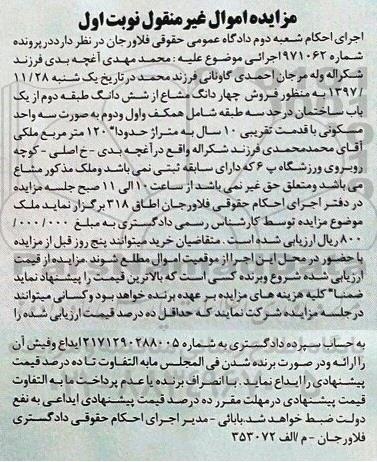 مزایده اموال غیر منقول نوبت اول
اجرای احکام شعبه دوم دادگاه عمومی حقوقی فلاورجان در نظر دارد در پرونده
شماره ۹۷۱۰۶۲ اجرائی موضوع علیه : محمد مهدی آغچه بدی فرزند
شکراله وله مرجان احمدی گاونانی فرزند محمد در تاریخ یک شنبه ۱۱/۲۸
/۱۳۹۷ به منظور فروش چهار دانگ مشاع از شش دانگ طبقه دوم از یک
باب ساختمان در حد سه طبقه شامل همکف واول ودوم به صورت سه واحد
مسکونی با قدمت تقریبی ۱۰ سال به متراژ حدودا" ۱۲۰ متر مربع ملکی
آقای محمد محمدی فرزند شکراله واقع در آغچه بدی - خ اصلی - کوچه
روبروی ورزشگاه پ ۶ که دارای سابقه ثبتی نمی باشد وملک مذکور مشاع
می باشد ومتعلق حق غیر نمی باشد از ساعت ۱۰ الی ۱۱ صبح جلسه مزایده
در دفتر اجرای احکام حقوقی فلاورجان اطاق ۳۱۸ برگزار نماید ملک
موضوع مزایده توسط کارشناس رسمی دادگستری به مبلغ ۰۰۰/۰۰۰/
۸۰۰ ریال ارزیابی شده است . متقاضیان خرید میتوانند پنج روز قبل از مزایده
با حضور در محل این اجرا از موقعیت اموال مطلع شوند . مزایده از قیمت
ارزیابی شده شروع وبرنده کسی است که بالاترین قیمت را پیشنهاد نماید
ضمنا" کلیه هزینه های مزایده بر عهده برنده خواهد بود وکسانی میتوانند
در جلسه مزایده شرکت نمایند که حداقل ده درصد قیمت ارزیابی شده را
به حساب سپرده دادگستری به شماره ۲۱۷۱۲۹۰۲۸۸۰۰۵ ایداع وفیش آن
را ارائه ودر صورت برنده شدن فی المجلس مابه التفاوت تا ده درصد قیمت
پیشنهادی را ایداع نماید . با انصراف برنده یا عدم پرداخت ما به التفاوت
قیمت پیشنهادی در مهلت مقرر ده درصد قیمت پیشنهادی ایداعی به نفع
دولت ضبط خواهد شد.بابائی - مدیر اجرای احکام حقوقی دادگستری
فلاورجان - م /الف ۳۵۳۰۷۲